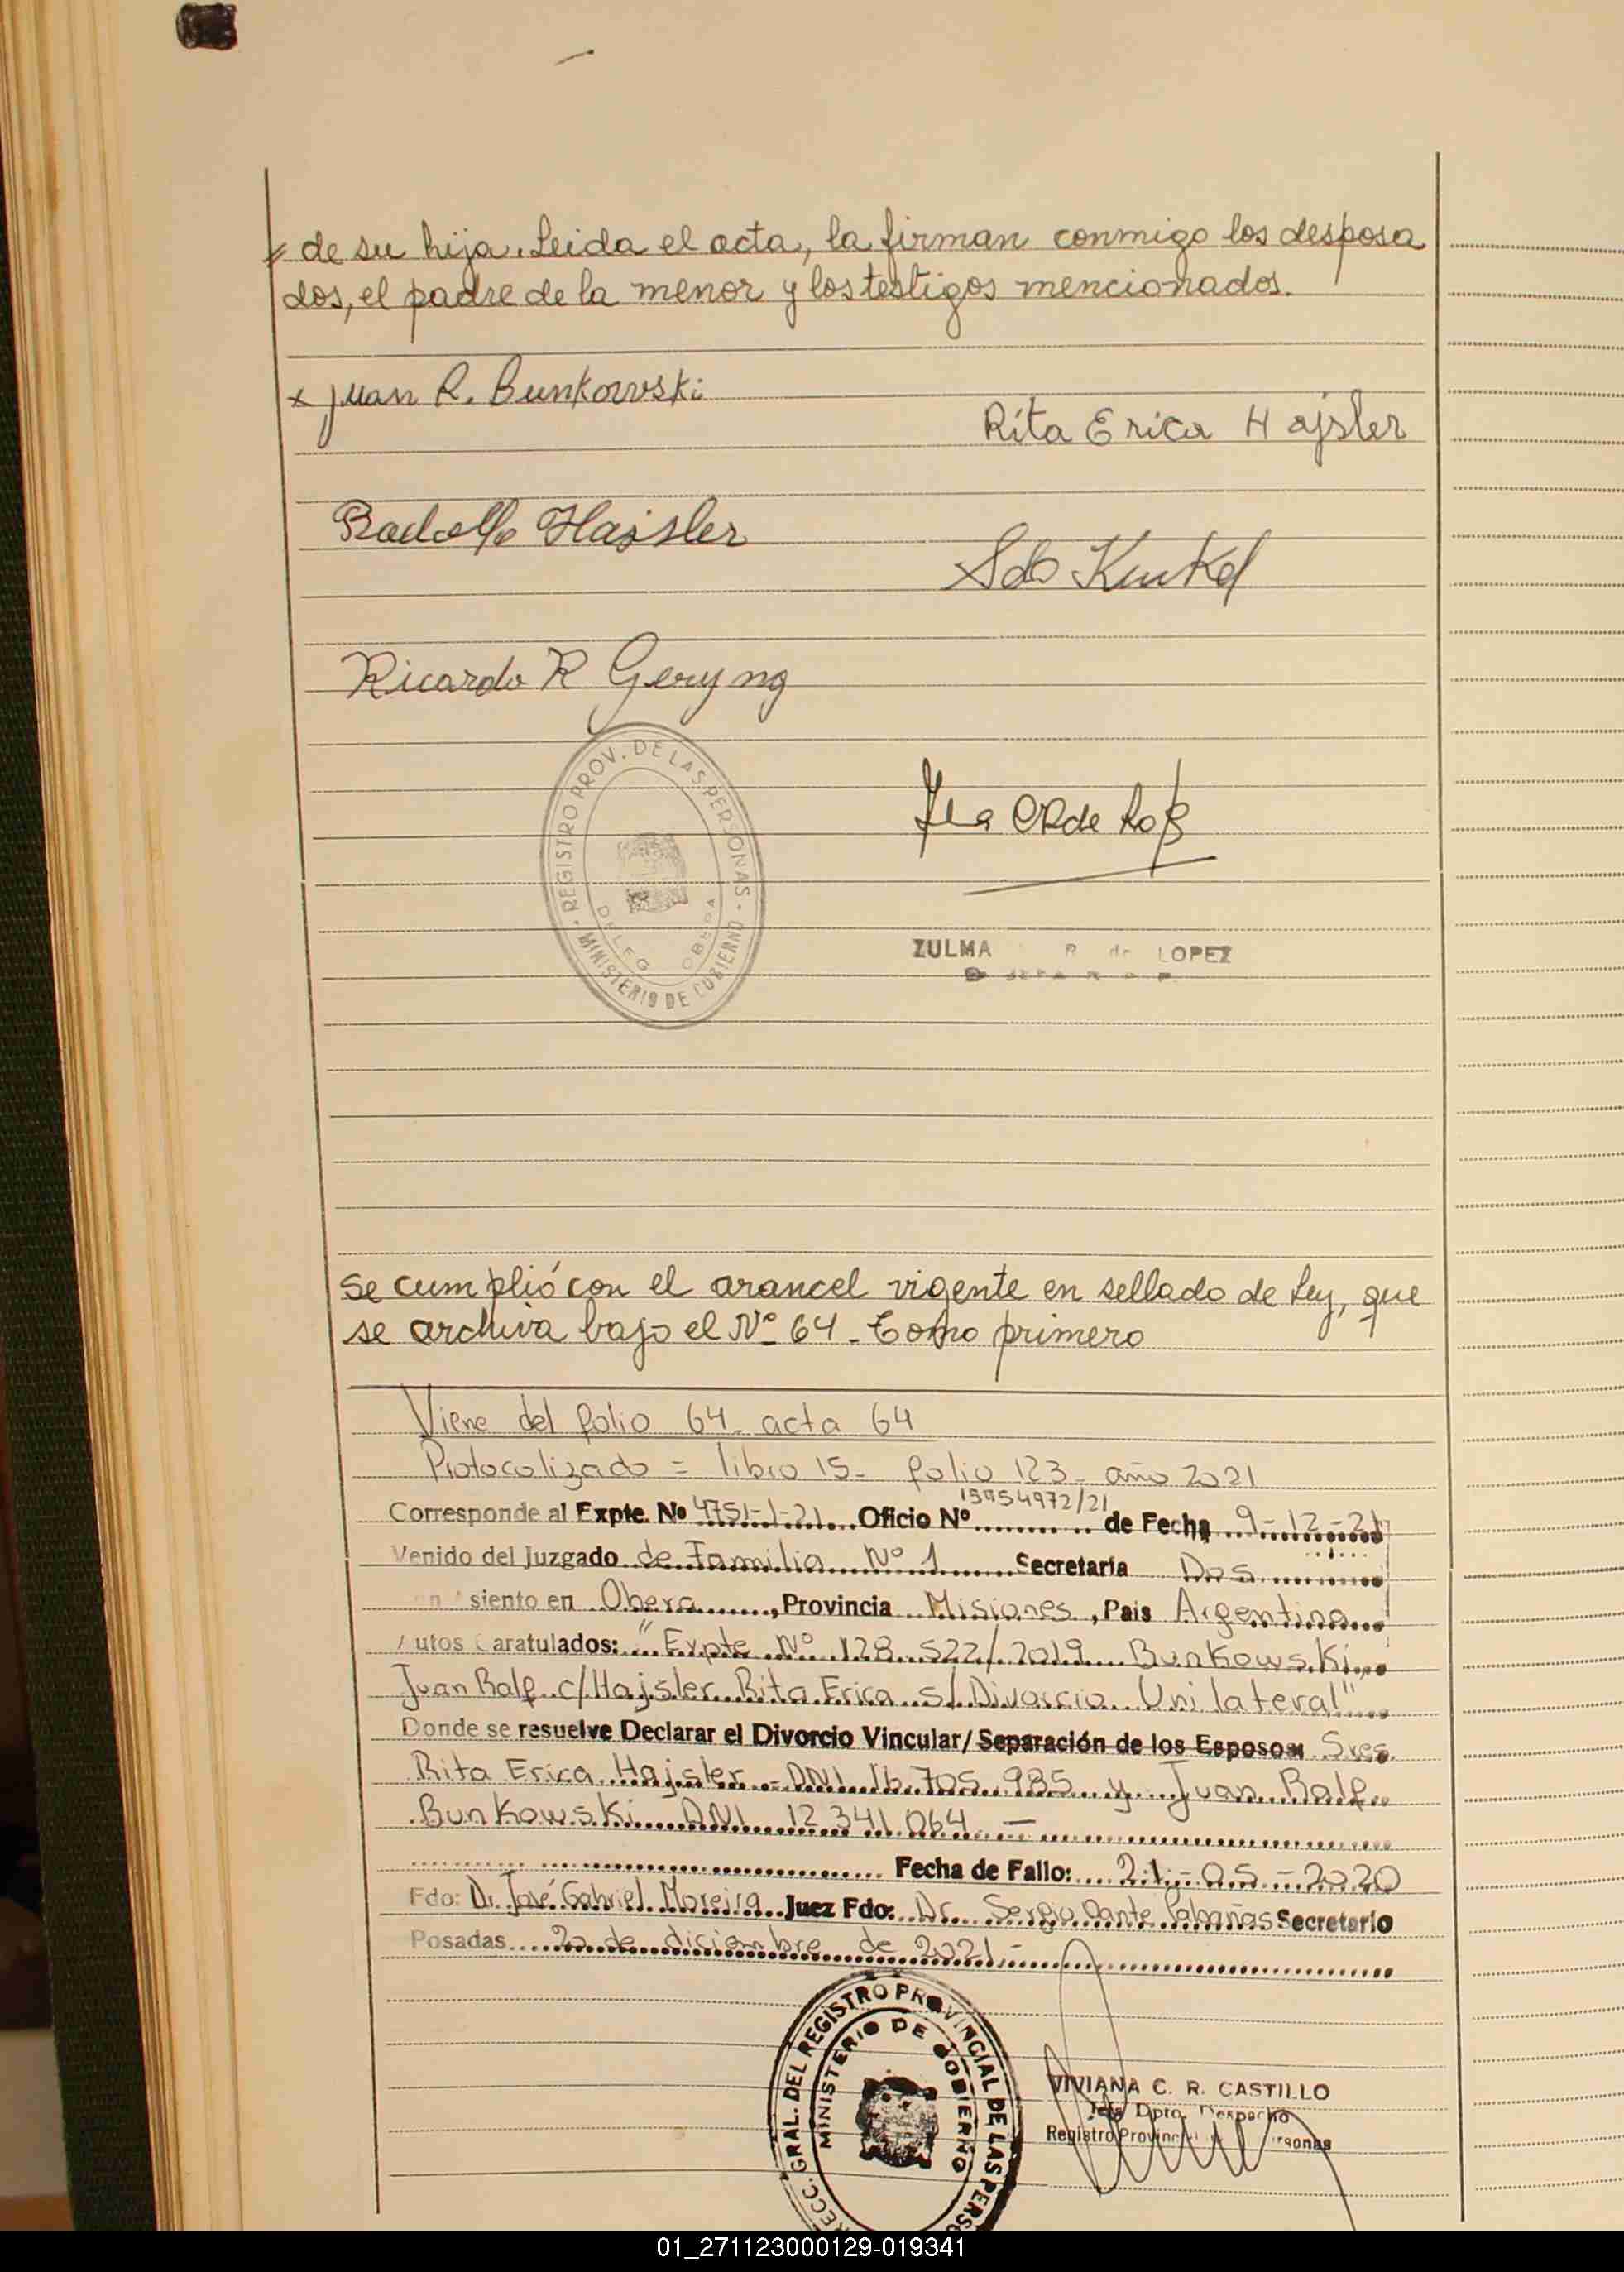 de su hija. Leida el acta, la firman conmigo los desposa
dos, el padre de la menor y los testigos mencionados.
x Juan R. Bunkowski
Rita Erica Hajsler
Rodolfo Hajsler
Kunkel
Ricardo R Geryng
REGISTRO PROV. DE LAS PERSONAS - MINISTERIO DE GOBIERNO
DELEG OBERA
de
ZULMA R de LOPEZ
se cumplió con el arancel vigente en sellado de Ley, que
se archiva bajo el Nº 64 - Tomo primero
Viene del folio 64 - acta 64
Protocolizado = libro 15 - folio 123 - año 2021
Corresponde al Expte. Nº 4751-1-21 Oficio Nº 15954972/21 de Fecha 9-12-21
Venido del Juzgado de Familia Nº 1 Secretaría Dos
siento en Obera, Provincia Misiones, Pais Argentina
Autos Caratulados: "Expte Nº 128.522/2019 Bunkowski
Juan Ralf c/Hajsler Rita Erica s/Divorcio Unilateral"
Donde se resuelve Declarar el Divorcio Vincular/Separación de los Esposos Sres.
Rita Erica Hajsler - DNI 16.705.985 y Juan Ralf
Bunkowski DNI 12.341.064 -
Fecha de Fallo: 21-05-2020
Fdo: Dr. José Gabriel Moreira Juez Fdo: Dr. Sergio Dante Cabañas Secretario
Posadas 20 de diciembre de 2021 -
RECC. GRAL. DEL REGISTRO PROVINCIAL DE LAS PERSO
MINISTERIO DE GOBIERNO
VIVIANA C. R. CASTILLO
Jefa Dpto. Despacho
Registro Provinc rsonas
01_271123000129-019341